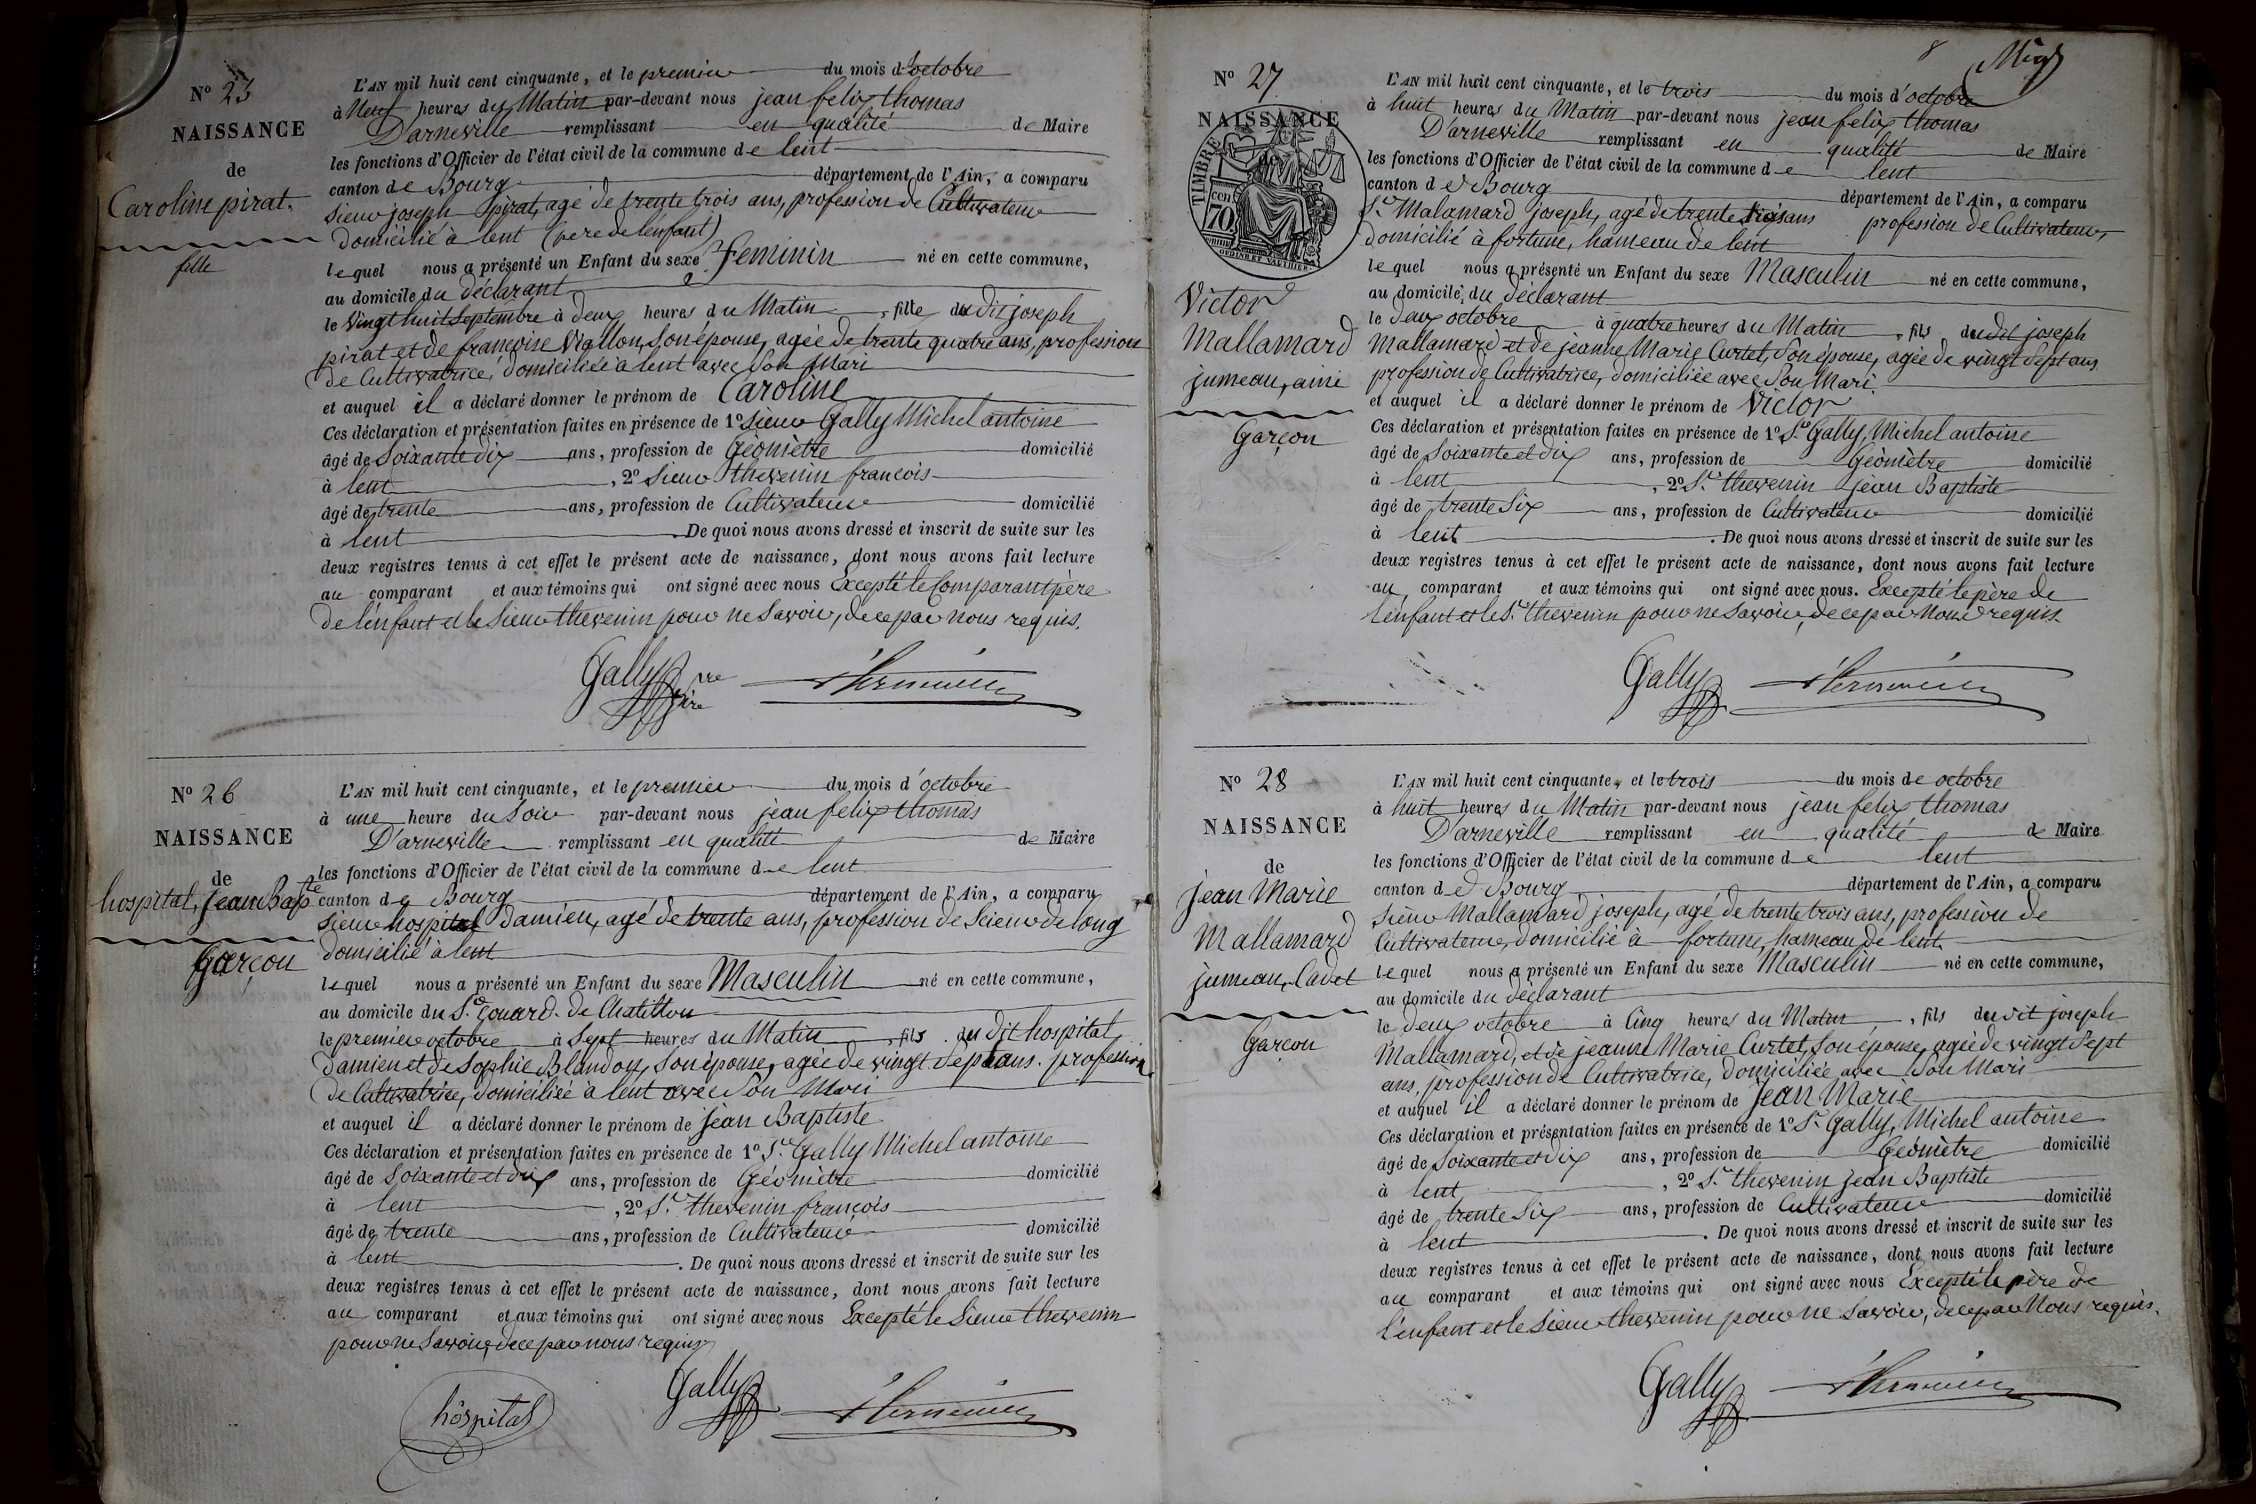 N° 25
NAISSANCE
de
Caroline pirat.
fille
L'AN mil huit cent cinquante, et le premier du mois d'octobre
à Neuf heures du Matin par-devant nous jean felix thomas
D'arneville remplissant en qualité de Maire
les fonctions d'Officier de l'état civil de la commune de lent
canton de Bourg département de l'Ain, a comparu
sieur joseph pirat, agé de trente trois ans, profession de Cultivateur
domicilié à lent (père de l'enfant)
lequel nous a présenté un Enfant du sexe feminin né en cette commune,
au domicile du déclarant
le vingt huit Septembre à deux heures du Matin, fille du dit joseph
pirat et de françoise Viallon, son épouse, agée de trente quatre ans, profession
de Cultivatrice, domiciliée à lent avec Son Mari
et auquel il a déclaré donner le prénom de Caroline
Ces déclaration et présentation faites en présence de 1° sieur Gally Michel antoine
âgé de Soixante dix ans, profession de Géomètre domicilié
à lent, 2° Sieur thevenin françois
âgé de trente ans, profession de Cultivateur domicilié
à lent. De quoi nous avons dressé et inscrit de suite sur les
deux registres tenus à cet effet le présent acte de naissance, dont nous avons fait lecture
au comparant et aux témoins qui ont signé avec nous Excepté le Comparant père
de l'enfant et le Sieur thevenin pour ne Savoir, de ce par nous requis.
Gally
N° 26
NAISSANCE
de
hospital, Jean Bapte
Garçon
L'AN mil huit cent cinquante, et le premier du mois d'octobre
à une heure du Soir par-devant nous jean felix thomas
D'arneville remplissant en qualité de Maire
les fonctions d'Officier de l'état civil de la commune de lent
canton de Bourg département de l'Ain, a comparu
Sieur hospital Damien, agé de trente ans, profession de Scieur de long
domicilié à lent
lequel nous a présenté un Enfant du sexe Masculin né en cette commune,
au domicile du Sr. Gouard. de Chatillon
le premier octobre à Sept heures du Matin, fils du dit hospital
Damien et de Sophie Blandon, son épouse, agée de vingt Sept ans. profession
de Cultivatrice, domiciliée à lent avec Son Mari
et auquel il a déclaré donner le prénom de jean Baptiste
Ces déclaration et présentation faites en présence de 1° Sr. Gally Michel antoine
âgé de Soixante et dix ans, profession de Géomètre domicilié
à lent, 2° Sr. thevenin françois
âgé de trente ans, profession de Cultivateur domicilié
à lent. De quoi nous avons dressé et inscrit de suite sur les
deux registres tenus à cet effet le présent acte de naissance, dont nous avons fait lecture
au comparant et aux témoins qui ont signé avec nous Excepté le Sieur thevenin
pour ne Savoir, de ce par nous requis
hospital Gally
8
N° 27
NAISSANCE
TIMBRE
70 cen
Victor
Mallamard
jumeau, ainé
Garçon
L'AN mil huit cent cinquante, et le trois du mois d'octobre
à huit heures du Matin par-devant nous jean felix thomas
D'arneville remplissant en qualité de Maire
les fonctions d'Officier de l'état civil de la commune de lent
canton de Bourg département de l'Ain, a comparu
Sr. Malamard joseph, agé de trente trois ans profession de Cultivateur,
domicilié à fortune, hameau de lent
lequel nous a présenté un Enfant du sexe Masculin né en cette commune,
au domicile du déclarant
le deux octobre à quatre heures du Matin, fils du dit joseph
Mallamard et de jeanne Marie Curtet, Son épouse, agée de vingt Sept ans
profession de Cultivatrice, domiciliée avec Son Mari
et auquel il a déclaré donner le prénom de Victor
Ces déclaration et présentation faites en présence de 1° Sr. Gally, Michel antoine
âgé de Soixante et dix ans, profession de Géomètre domicilié
à lent, 2° Sr. thevenin jean Baptiste
âgé de trente Six ans, profession de Cultivateur domicilié
à lent. De quoi nous avons dressé et inscrit de suite sur les
deux registres tenus à cet effet le présent acte de naissance, dont nous avons fait lecture
au comparant et aux témoins qui ont signé avec nous. Excepté le père de
l'enfant et le Sr. thevenin pour ne Savoir, de ce par Nous requis.
Gally
N° 28
NAISSANCE
de
jean Marie
Mallamard
jumeau, Cadet
Garçon
L'AN mil huit cent cinquante, et le trois du mois de octobre
à huit heures du Matin par-devant nous jean felix thomas
D'arneville remplissant en qualité de Maire
les fonctions d'Officier de l'état civil de la commune de lent
canton de Bourg département de l'Ain, a comparu
Sieur Mallamard joseph, agé de trente trois ans, profession de
Cultivateur, domicilié à fortune, hameau de lent
lequel nous a présenté un Enfant du sexe Masculin né en cette commune,
au domicile du déclarant
le deux octobre à Cinq heures du Matin, fils du dit joseph
Mallamard, et de jeanne Marie Curtet, Son épouse, agée de vingt Sept
ans, profession de Cultivatrice, domiciliée avec Son Mari
et auquel il a déclaré donner le prénom de Jean Marie
Ces déclaration et présentation faites en présence de 1° Sr. Gally, Michel antoine
âgé de Soixante et dix ans, profession de Géomètre domicilié
à lent, 2° Sr. thevenin jean Baptiste
âgé de trente Six ans, profession de Cultivateur domicilié
à lent. De quoi nous avons dressé et inscrit de suite sur les
deux registres tenus à cet effet le présent acte de naissance, dont nous avons fait lecture
au comparant et aux témoins qui ont signé avec nous Excepté le père de
l'enfant et le Sieur thevenin pour ne Savoir, de ce par Nous requis.
Gally